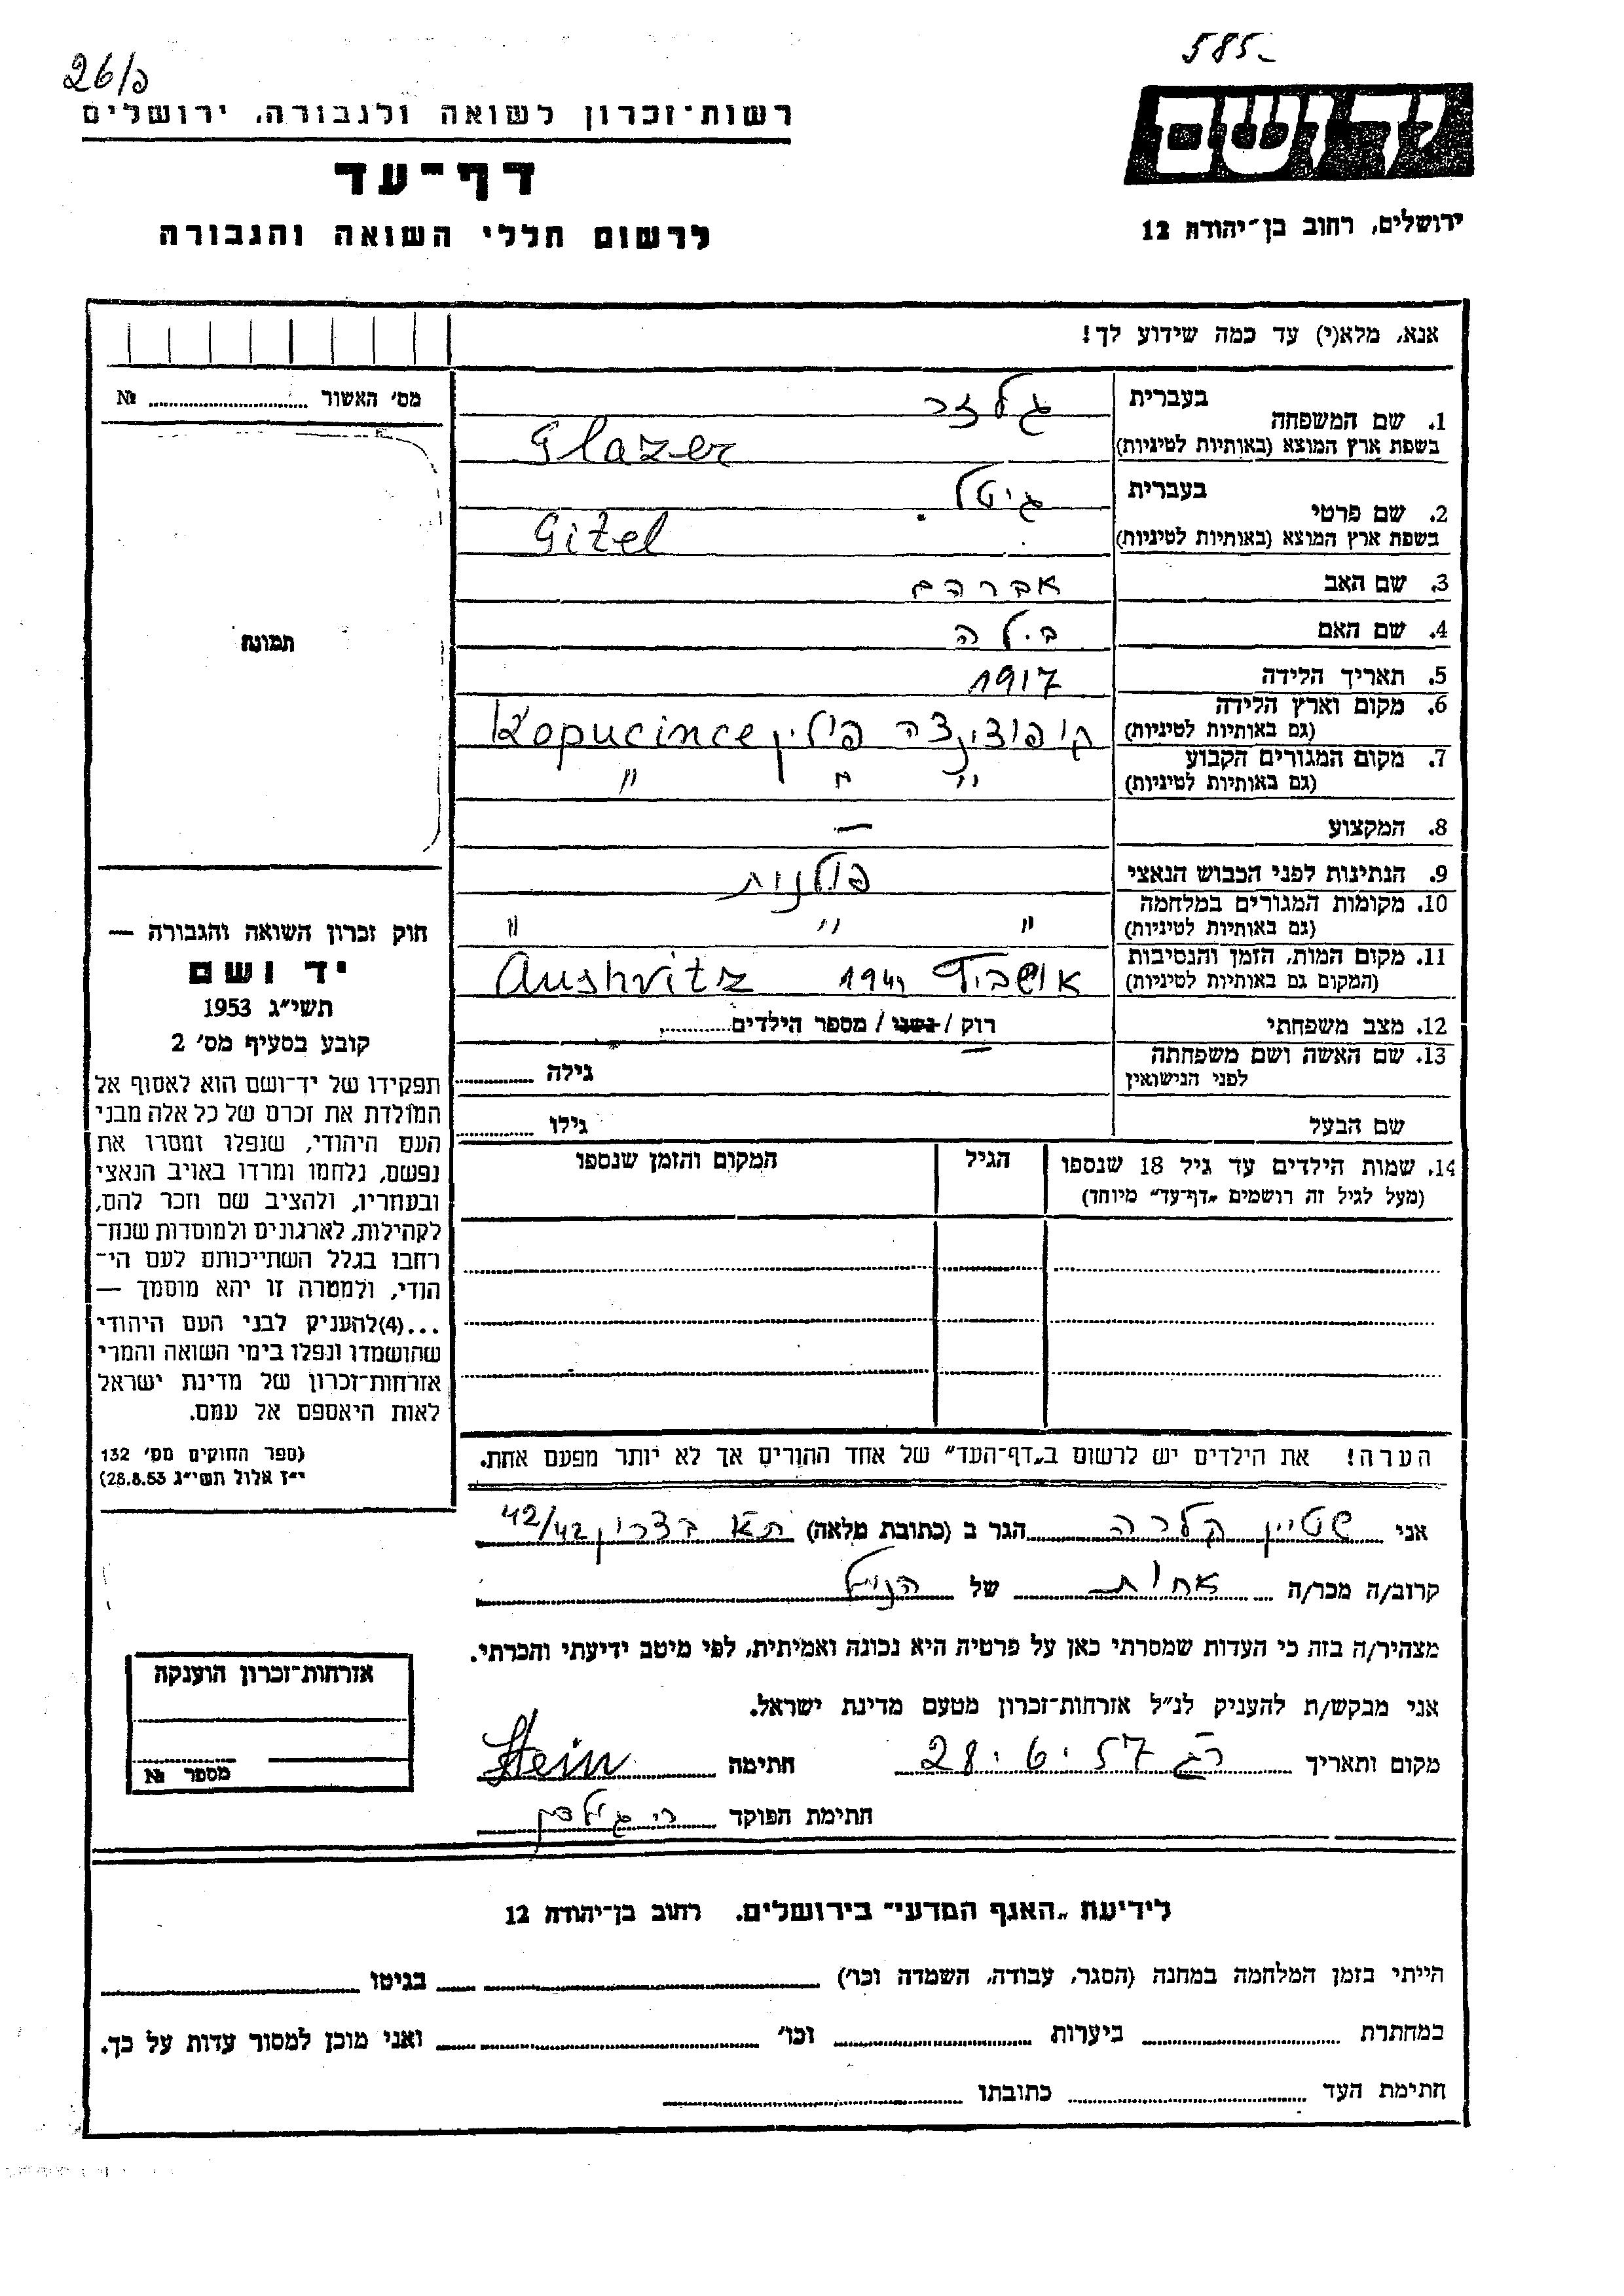 585-
26/כ
יד ושם
רשות-זכרון לשואה ולגבורה, ירושלים
דף-עד
לרשום חללי השואה והגבורה
ירושלים, רחוב בן-יהודה 12
אנא, מלא(י) עד כמה שידוע לך!
מס' האשור № 
1. שם המשפחה
בעברית גלזר
בשפת ארץ המוצא (באותיות לטיניות) Glazer
2. שם פרטי
בעברית גיטל
בשפת ארץ המוצא (באותיות לטיניות) Gitel
3. שם האב אברהם
4. שם האם בילה
5. תאריך הלידה 1917
6. מקום וארץ הלידה (גם באותיות לטיניות) קופוצינצה פולין Kopucince
7. מקום המגורים הקבוע (גם באותיות לטיניות) " " "
8. המקצוע —
9. הנתינות לפני הכבוש הנאצי פולנית
10. מקומות המגורים במלחמה (גם באותיות לטיניות) " " "
11. מקום המות, הזמן והנסיבות (המקום גם באותיות לטיניות) אושביץ 1941 Aushvitz
12. מצב משפחתי רוק / נשוי / מספר הילדים
13. שם האשה ושם משפחתה לפני הנישואין — גילה
שם הבעל גילו
14. שמות הילדים עד גיל 18 שנספו (מעל לגיל זה רושמים „דף-עד" מיוחד) הגיל המקום והזמן שנספו
תמונה
חוק זכרון השואה והגבורה —
יד ושם
תשי״ג 1953
קובע בסעיף מס' 2
תפקידו של יד-ושם הוא לאסוף אל
המולדת את זכרם של כל אלה מבני
העם היהודי, שנפלו ומסרו את
נפשם, נלחמו ומרדו באויב הנאצי
ובעוזריו, ולהציב שם וזכר להם,
לקהילות, לארגונים ולמוסדות שנח-
רחבו בגלל השתייכותם לעם הי-
הודי, ולמטרה זו יהא מוסמך —
...(4)להעניק לבני העם היהודי
שהושמדו ונפלו בימי השואה והמרי
אזרחות-זכרון של מדינת ישראל
לאות היאספם אל עמם.
(ספר החוקים מס' 132
י״ז אלול תשי״ג 28.8.53)
הערה! את הילדים יש לרשום ב„דף-העד" של אחד ההורים אך לא יותר מפעם אחת.
אני שטיין קלרה הגר ב (כתובת מלאה) תא בצרון 42/42
קרוב/ה מכר/ה אחות של הנ״ל
מצהיר/ה בזה כי העדות שמסרתי כאן על פרטיה היא נכונה ואמיתית, לפי מיטב ידיעתי והכרתי.
אני מבקש/ת להעניק לנ״ל אזרחות-זכרון מטעם מדינת ישראל.
מקום ותאריך רג 28.6.57 חתימה Stein
חתימת הפוקד
אזרחות-זכרון הוענקה
מספר №
לידיעת „האגף המדעי" בירושלים. רחוב בן-יהודה 12
הייתי בזמן המלחמה במחנה (הסגר, עבודה, השמדה וכו') בגיטו
במחתרת ביערות וכו' ואני מוכן למסור עדות על כך.
חתימת העד כתובתו